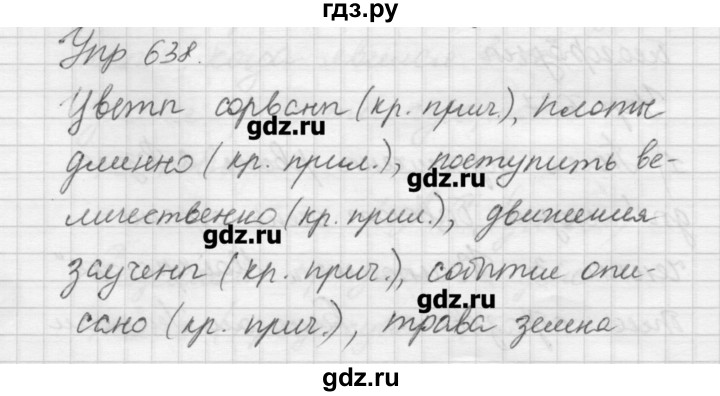 гдз.ру
Упр 638.
Цветы сорваны (кр. прич.), плоты
gdz.ru
длинно (кр. прил.), поступить ве-
gdz.ru
личественно (кр. прил.), движения
gdz.ru
заучены (кр. прич.), событие опи-
gdz.ru
сано (кр. прич.), трава зелена
gdz.ru